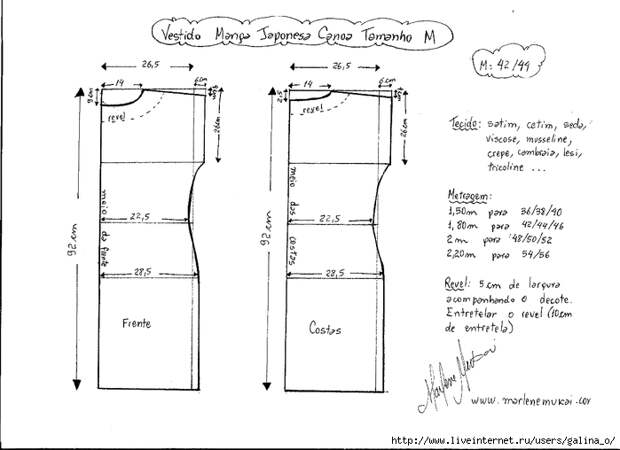 Vestido Manga Japonesa Canoa Tamanho M
M: 42/44
26,5
6cm
14
revel
26cm
92cm
meio da frente
22,5
28,5
Frente
26,5
6cm
14
revel
26cm
92cm
meio das costas
22,5
28,5
Costas
Tecido: satim, cetim, seda,
viscose, musseline,
crepe, cambraia, lesi,
tricoline ...
Metragem:
1,50m para 36/38/40
1,80m para 42/44/46
2m para 48/50/52
2,20m para 54/56
Revel: 5cm de largura
acompanhando o decote.
Entretelar o revel (10cm
de entretela)
Marlene Mukai
www.marlenemukai.com
http://www.liveinternet.ru/users/galina_o/